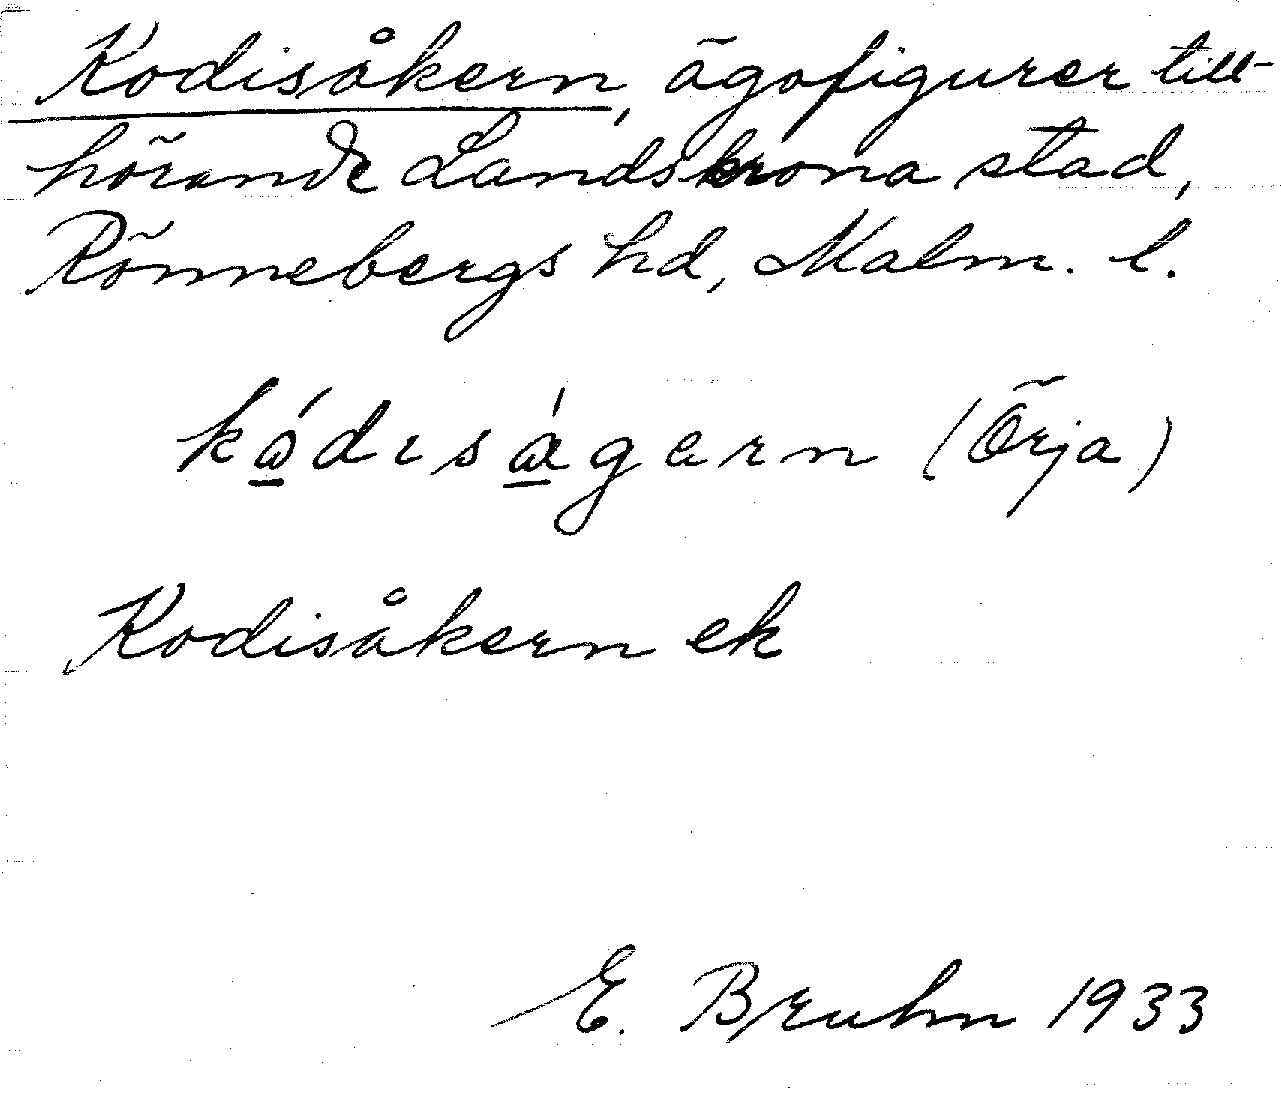 Kodisåkern, ägofigurer till-
hörande Landskrona stad,
Rönnebergs hd, Malm. l.
kǻdɩsǻgarn (Örja)
Kodisåkern ek
E. Bruhn 1933